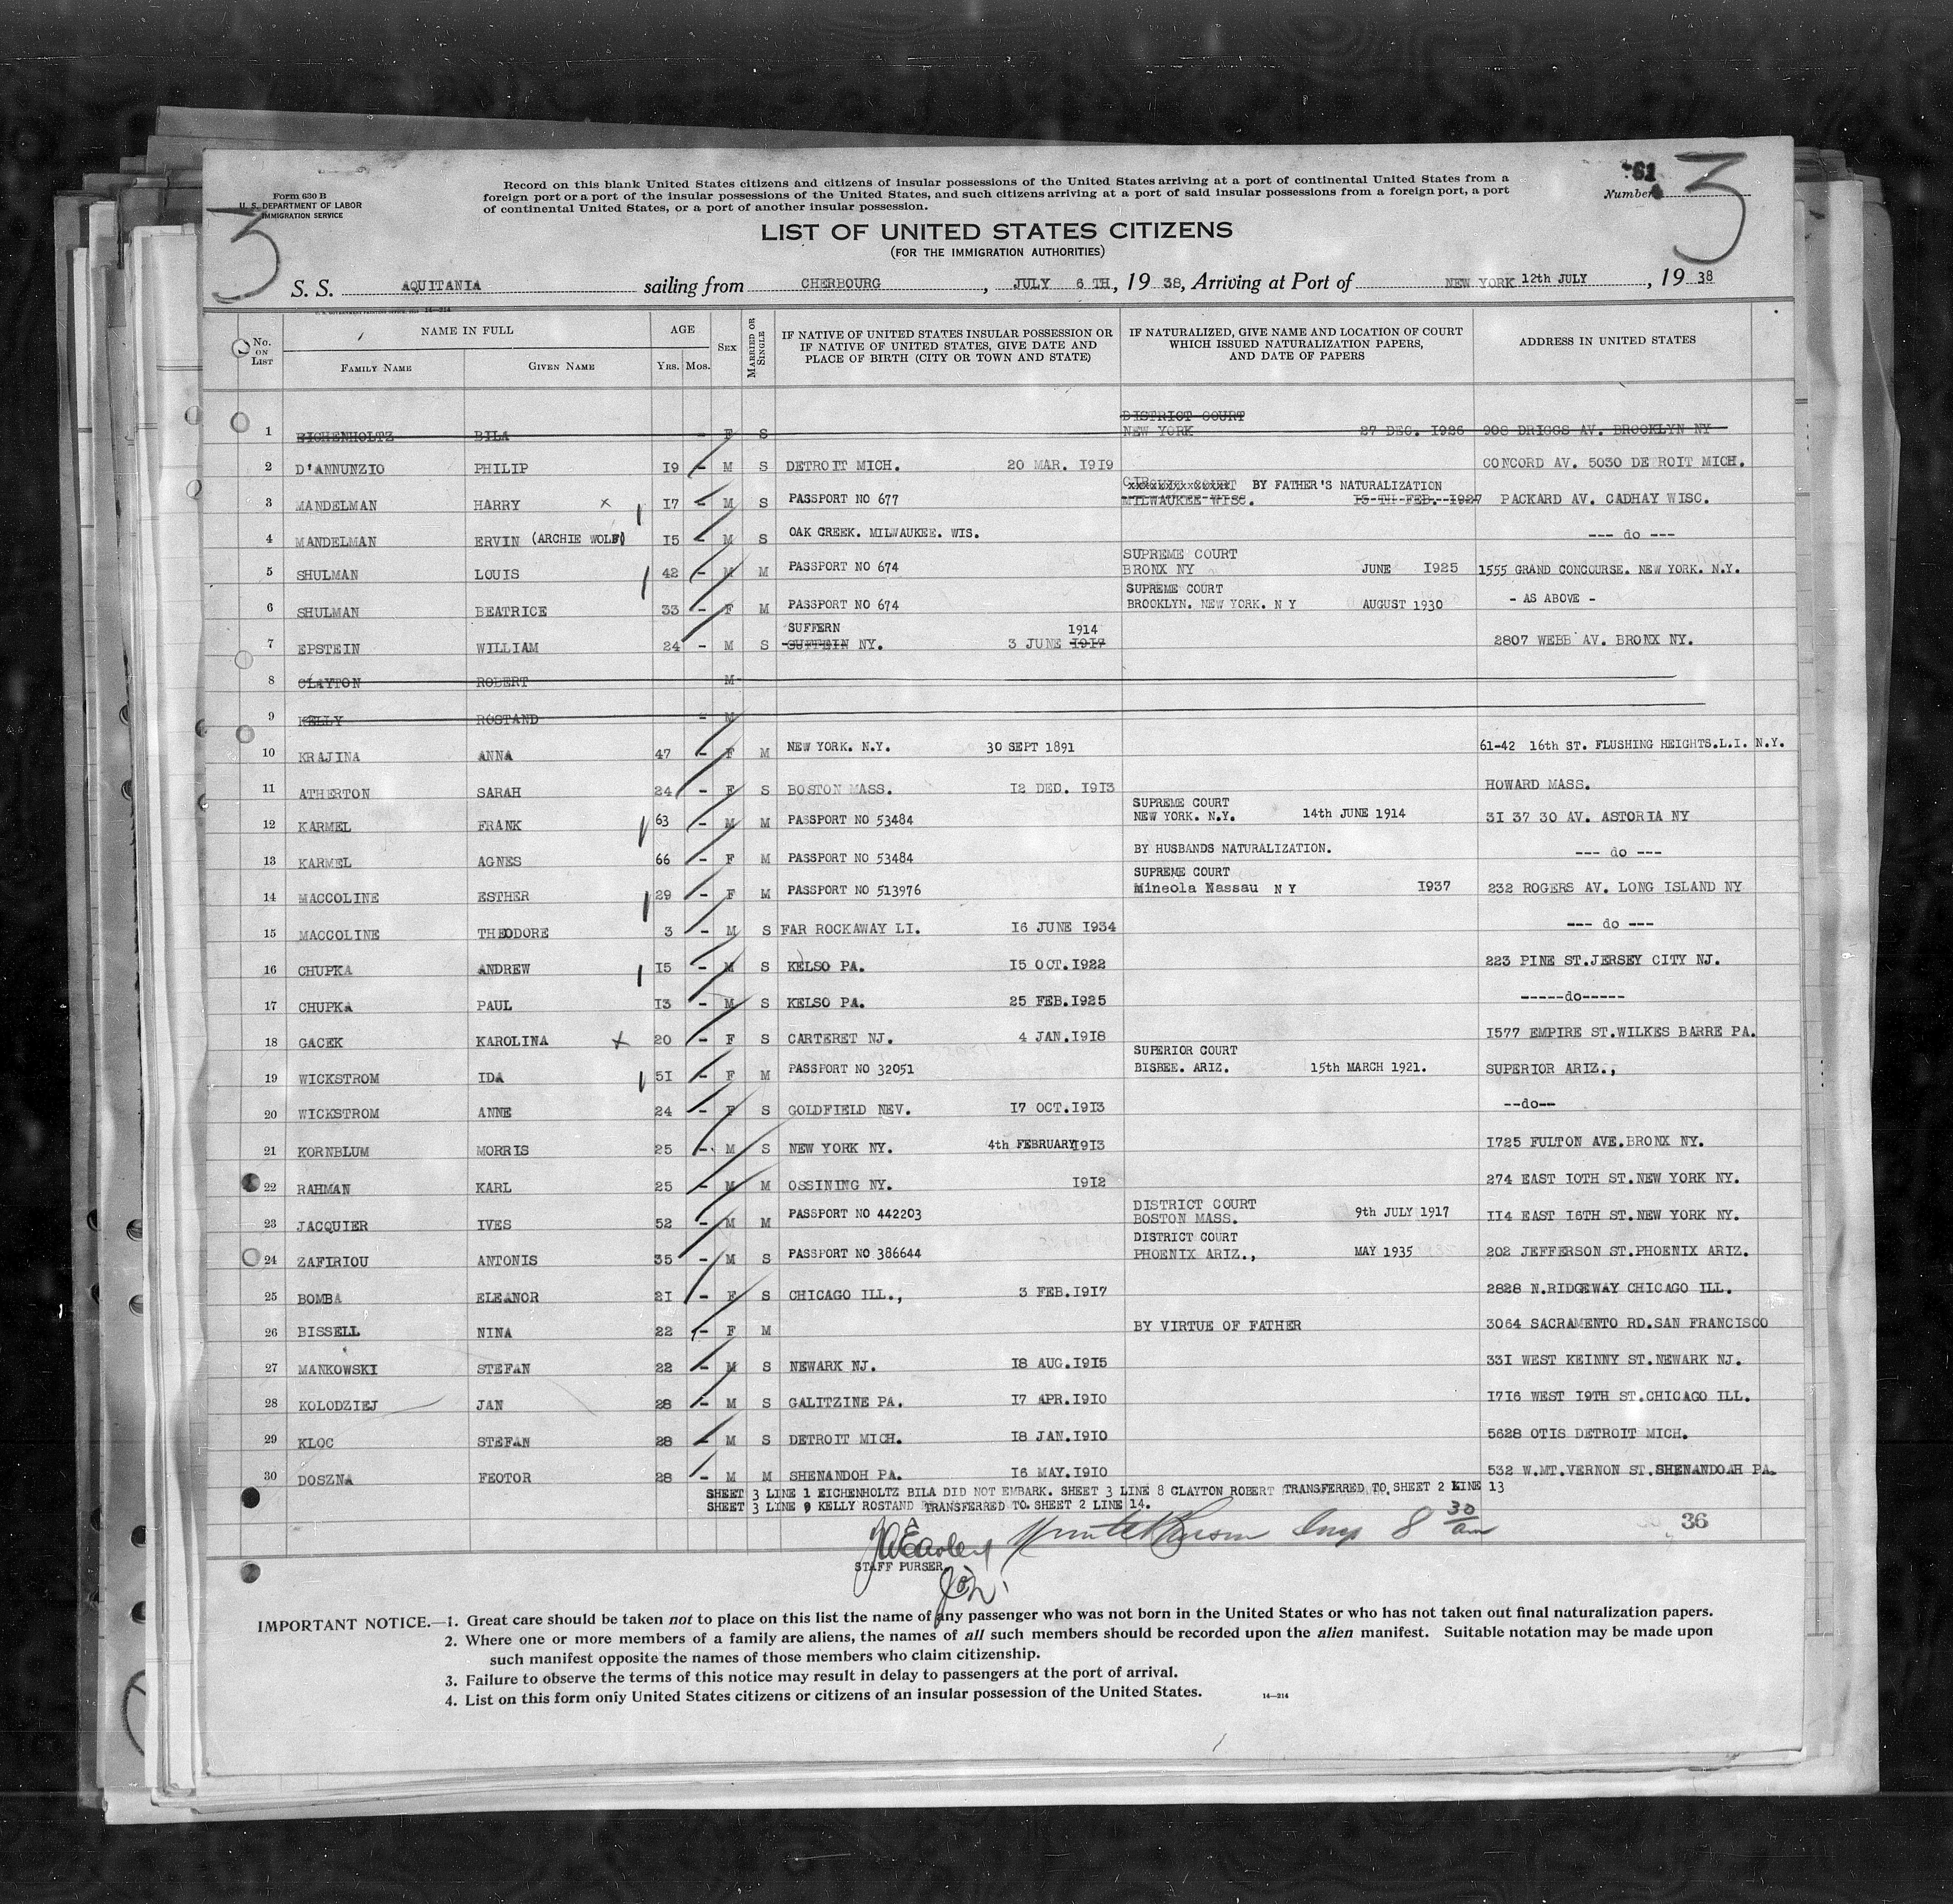 Form 630 B
U. S. DEPARTMENT OF LABOR
IMMIGRATION SERVICE
3
Record on this blank United States citizens and citizens of insular possessions of the United States arriving at a port of continental United States from a
foreign port or a port of the insular possessions of the United States, and such citizens arriving at a port of said insular possessions from a foreign port, a port
of continental United States, or a port of another insular possession.
61
Number 3
LIST OF UNITED STATES CITIZENS
(FOR THE IMMIGRATION AUTHORITIES)
S. S. AQUITANIA sailing from CHERBOURG, JULY 6 TH, 19 38, Arriving at Port of NEW YORK 12th JULY, 19 38
14—214
No. ON LIST NAME IN FULL FAMILY NAME GIVEN NAME AGE YRS. MOS. SEX MARRIED OR SINGLE IF NATIVE OF UNITED STATES INSULAR POSSESSION OR IF NATIVE OF UNITED STATES, GIVE DATE AND PLACE OF BIRTH (CITY OR TOWN AND STATE) IF NATURALIZED, GIVE NAME AND LOCATION OF COURT WHICH ISSUED NATURALIZATION PAPERS, AND DATE OF PAPERS ADDRESS IN UNITED STATES
DISTRICT COURT
1 EICHENHOLTZ BILA - F S NEW YORK 27 DEC. 1926 908 DRIGGS AV. BROOKLYN NY
2 D'ANNUNZIO PHILIP 19 - M S DETROIT MICH. 20 MAR. 1919 CONCORD AV. 5030 DETROIT MICH.
BY FATHER'S NATURALIZATION
3 MANDELMAN HARRY x 17 - M S PASSPORT NO 677 MILWAUKEE WISC. 15 TH FEB. 1927 PACKARD AV. CADHAY WISC.
4 MANDELMAN ERVIN (ARCHIE WOLF) 15 - M S OAK CREEK. MILWAUKEE. WIS. --- do ---
SUPREME COURT
5 SHULMAN LOUIS 42 - M M PASSPORT NO 674 BRONX NY JUNE 1925 1555 GRAND CONCOURSE. NEW YORK. N.Y.
SUPREME COURT
6 SHULMAN BEATRICE 33 - F M PASSPORT NO 674 BROOKLYN. NEW YORK. N Y AUGUST 1930 - AS ABOVE -
SUFFERN 1914
7 EPSTEIN WILLIAM 24 - M S NY. 3 JUNE 1917 2807 WEBB AV. BRONX NY.
8 CLAYTON ROBERT M
9 KELLY ROSTAND - M
10 KRAJINA ANNA 47 - F M NEW YORK. N.Y. 30 SEPT 1891 61-42 16th ST. FLUSHING HEIGHTS.L.I. N.Y.
11 ATHERTON SARAH 24 - F S BOSTON MASS. 12 DEC. 1913 HOWARD MASS.
SUPREME COURT
12 KARMEL FRANK 63 - M M PASSPORT NO 53484 NEW YORK. N.Y. 14th JUNE 1914 31 37 30 AV. ASTORIA NY
13 KARMEL AGNES 66 - F M PASSPORT NO 53484 BY HUSBANDS NATURALIZATION. --- do ---
SUPREME COURT
14 MACCOLINE ESTHER 29 - F M PASSPORT NO 513976 Mineola Nassau N Y 1937 232 ROGERS AV. LONG ISLAND NY
15 MACCOLINE THEODORE 3 - M S FAR ROCKAWAY LI. 16 JUNE 1934 --- do ---
16 CHUPKA ANDREW 15 - M S KELSO PA. 15 OCT.1922 223 PINE ST.JERSEY CITY NJ.
17 CHUPKA PAUL 13 - M S KELSO PA. 25 FEB.1925 -----do-----
18 GACEK KAROLINA x 20 - F S CARTERET NJ. 4 JAN.1918 1577 EMPIRE ST.WILKES BARRE PA.
SUPERIOR COURT
19 WICKSTROM IDA 51 - F M PASSPORT NO 32051 BISBEE. ARIZ. 15th MARCH 1921. SUPERIOR ARIZ.,
20 WICKSTROM ANNE 24 - F S GOLDFIELD NEV. 17 OCT.1913 --do--
21 KORNBLUM MORRIS 25 - M S NEW YORK NY. 4th FEBRUARY1913 1725 FULTON AVE.BRONX NY.
22 RAHMAN KARL 25 - M M OSSINING NY. 1912 274 EAST 10TH ST.NEW YORK NY.
DISTRICT COURT
23 JACQUIER IVES 52 - M M PASSPORT NO 442203 BOSTON MASS. 9th JULY 1917 114 EAST 16TH ST.NEW YORK NY.
DISTRICT COURT
24 ZAFIRIOU ANTONIS 35 - M S PASSPORT NO 386644 PHOENIX ARIZ., MAY 1935 202 JEFFERSON ST.PHOENIX ARIZ.
25 BOMBA ELEANOR 21 - F S CHICAGO ILL., 3 FEB.1917 2828 N.RIDGEWAY CHICAGO ILL.
26 BISSELL NINA 22 - F M BY VIRTUE OF FATHER 3064 SACRAMENTO RD.SAN FRANCISCO
27 MANKOWSKI STEFAN 22 - M S NEWARK NJ. 18 AUG.1915 331 WEST KEINNY ST.NEWARK NJ.
28 KOLODZIEJ JAN 28 - M S GALITZINE PA. 17 APR.1910 1716 WEST 19TH ST.CHICAGO ILL.
29 KLOC STEFAN 28 - M S DETROIT MICH. 18 JAN.1910 5628 OTIS DETROIT MICH.
30 DOSZNA FEOTOR 28 - M M SHENANDOH PA. 16 MAY.1910 532 W.MT.VERNON ST.SHENANDOAH PA.
SHEET 3 LINE 1 EICHENHOLTZ BILA DID NOT EMBARK. SHEET 3 LINE 8 CLAYTON ROBERT TRANSFERRED TO SHEET 2 LINE 13
SHEET 3 LINE 9 KELLY ROSTAND TRANSFERRED TO SHEET 2 LINE 14.
8 30 am 36
STAFF PURSER
IMPORTANT NOTICE.—1. Great care should be taken not to place on this list the name of any passenger who was not born in the United States or who has not taken out final naturalization papers.
2. Where one or more members of a family are aliens, the names of all such members should be recorded upon the alien manifest. Suitable notation may be made upon
such manifest opposite the names of those members who claim citizenship.
3. Failure to observe the terms of this notice may result in delay to passengers at the port of arrival.
4. List on this form only United States citizens or citizens of an insular possession of the United States.
14—214